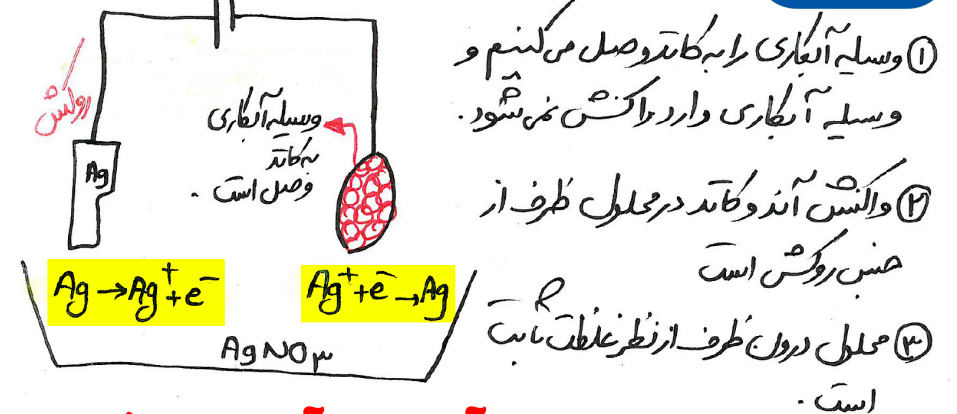 ① وسیله آبکاری را به کاتد وصل می‌کنیم و
وسیله آبکاری وارد واکنش نمی‌شود.
② واکنش آند و کاتد در محلول ظرف از
جنس روکش است
③ محلول درون ظرف از نظر غلظت ثابت
است.
روکش
وسیله آبکاری
به کاتد
وصل است.
Ag
Ag → Ag⁺ + e⁻
Ag⁺ + e⁻ → Ag
AgNO۳